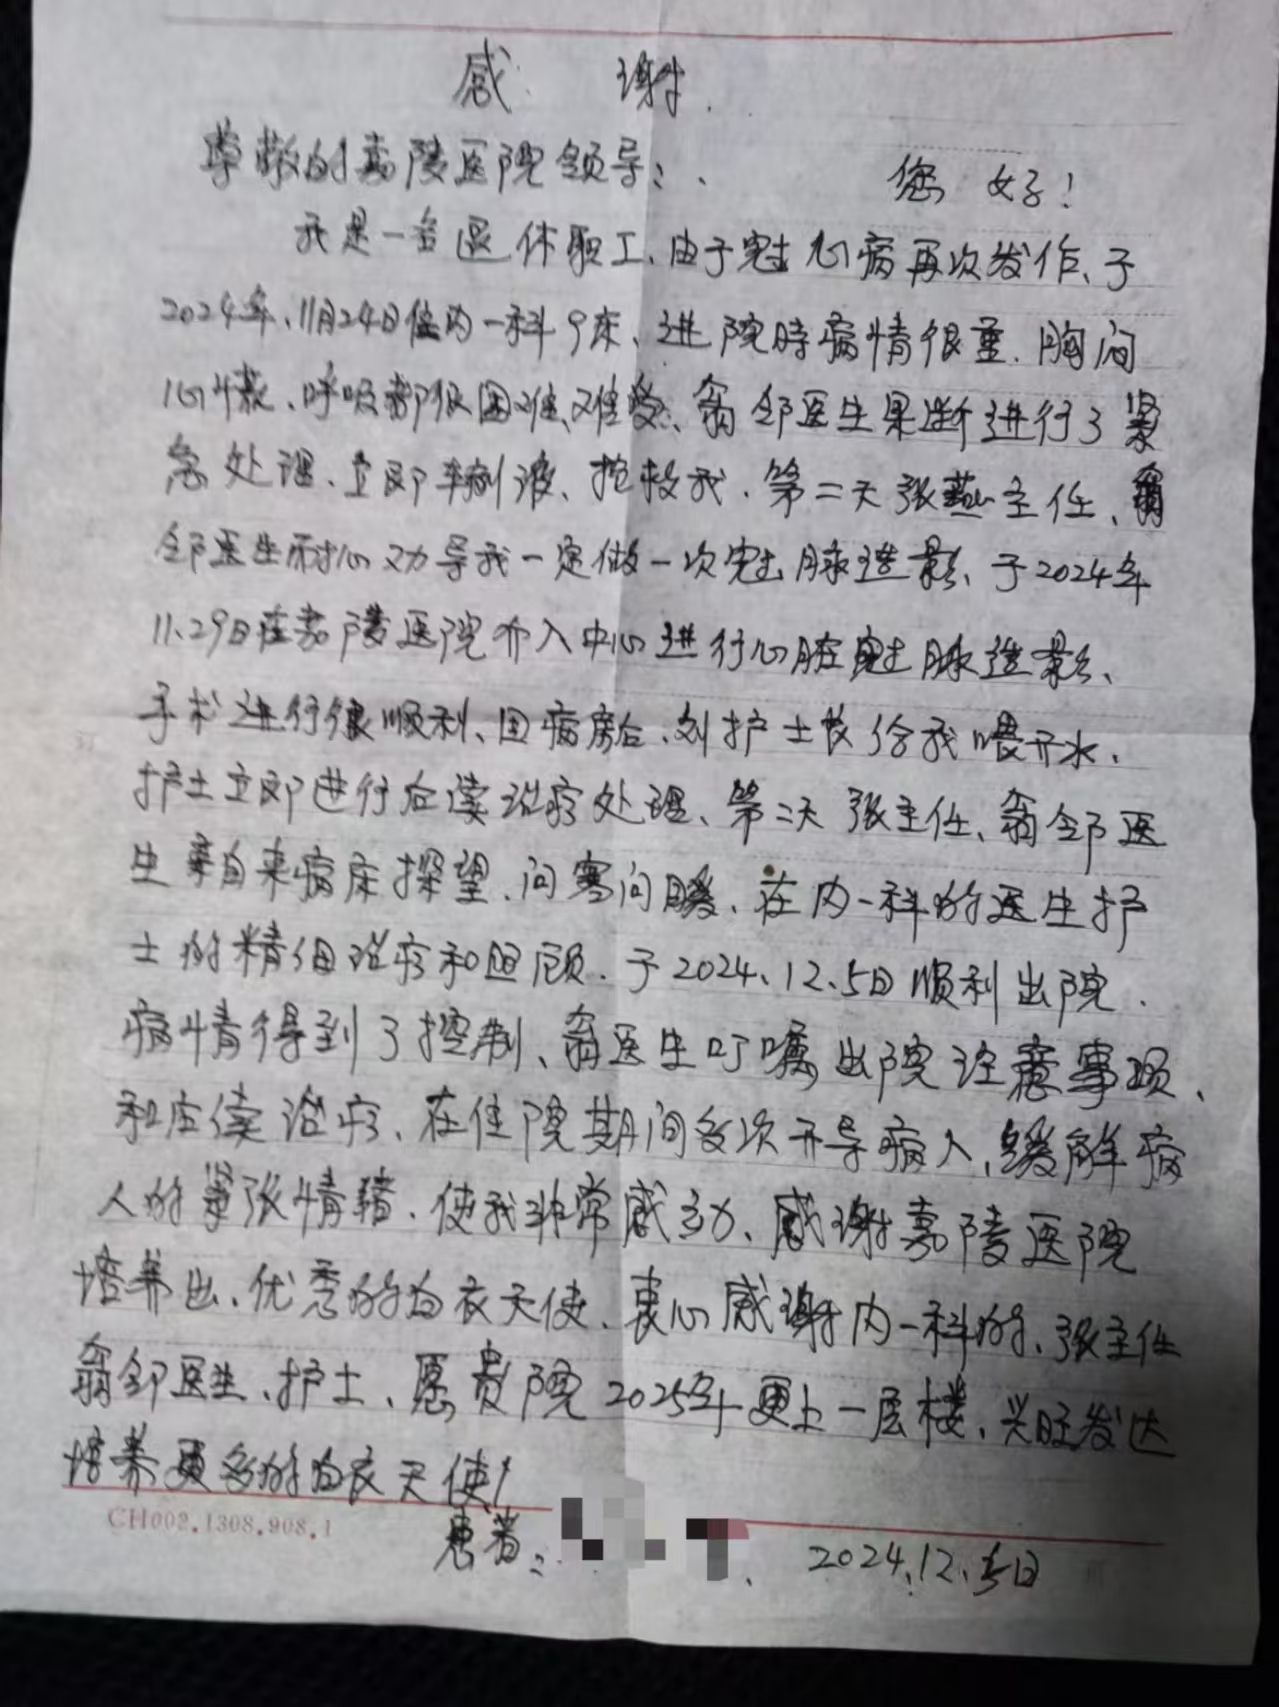 感 谢
尊敬的嘉陵医院领导: 您 好!
我是一名退休职工、由于冠心病再次发作、于
2024年、11月24日住内一科9床、进院時病情很重. 胸闷
心慌、呼吸都很困难、难受、翁邹医生果断进行了紧
急处理、立即输液、抢救我. 第二天张燕主任、翁
邹医生耐心劝导我一定做一次冠脉造影、于2024年
11.29日在嘉陵医院介入中心进行心脏冠脉造影、
手术进行很顺利、回病房后、刘护士长给我喂开水.
护士立即进行后续治疗处理、第二天张主任、翁邹医
生亲自来病床探望、问寒问暖、在内一科的医生护
士的精细治疗和照顾. 于2024.12.5日顺利出院.
病情得到了控制、翁医生叮嘱出院注意事项、
和后续治疗、在住院期间多次开导病人,缓解病
人的紧张情绪. 使我非常感动、感谢嘉陵医院
培养出、优秀的白衣天使、衷心感谢内一科的、张主任
翁邹医生、护士、愿贵院2025年更上一层楼、兴旺发达
培养更多的白衣天使!
CH002.1308.908.1
患者: 2024.12.5日